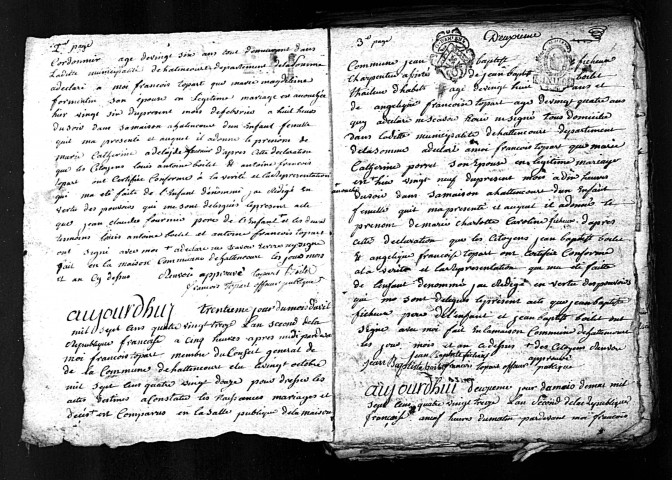 2e page
Cordonnier age de vingt six ans tout demeurant dans
Ladite municipalité d'hattencourt departement de la Somme
a declaré a moi francois topart que marie magdeleine
formentin son epouse en legitime mariage est accouchée
hier vingt six du present mois de huit heures
du soir dans sa maison a hattencourt d'un Enfant femelle
qui ma presenté et auquel il a donné le prenoms de
marie Catherine adelaide fournier d'apres cette declaration
que les Citoyens Louis antoine boilet & antoine francois
topart ont Certifié Conforme a la verité et la Representation
qui ma eté faite de l'enfant dénommé j'ai redigé en
vertu des pouvoirs qui me sont delegués le present acte
que jean claude fournier pere de l'Enfant et les deux
temoins louis antoine boilet et antoine francois topart
ont signé avec moi
fait en la maison Commune d'hattencourt les jours mois
et an Cy dessus
francois topart officier publique
aujourdhuy trentieme jour du mois d'avril
mil sept cens quatre vingt treize L'an second de la
Republique francaise a cinq heures apres midi par devant
moi francois topart membre du Conseil general de
de la Commune d'hattencourt elu le vingt octobre
mil sept cens quatre vingt douze pour dresser les
actes destinés a Constater les Naissances mariages et
deces est Comparus en la salle publique de la maison
3e page
Deuxieme
Commune jean baptiste ficheux
Charpentier assisté de jean baptiste boilet
thailleur d'habits agé de vingt huit ans et
de angelique francoise topart age de vingt quatre ans
quy a declaré ne scavoir Ecrire ni signé tous domiciliés
dans ladite municipalité d'hattencourt departement
de la somme a declaré a moi francois topart que marie
Catherine porret son epouse en legitime mariage
est hier vingt neuf du present mois a dix heures
du soir dans sa maison a hattencourt d'un Enfant
femelle qui ma presenté et auquel il a donné le
prenom de marie charlotte Caroline ficheux d'apres
cette declaration que les Citoyens jean baptiste boilet
& angelique francoise topart ont Certifié Conforme
a la verité et la Representation qui ma eté faite
de l'enfant dénommé j'ai redigé en vertu des pouvoirs
qui me sont delegués le present acte que jean baptiste
ficheux pere de l'enfant et jean baptiste boilet ont
signé avec moi fait en la maison Commune d'hattencourt
les jour mois et an Cy dessus
jean baptiste ficheux
jean Baptiste boilet francois topart officier publique
aujourdhuy deuxieme jour du mois de mai mil
sept cens quatre vingt treize L'an second de la Republique
francaise neuf heures du matin par devant moi francois